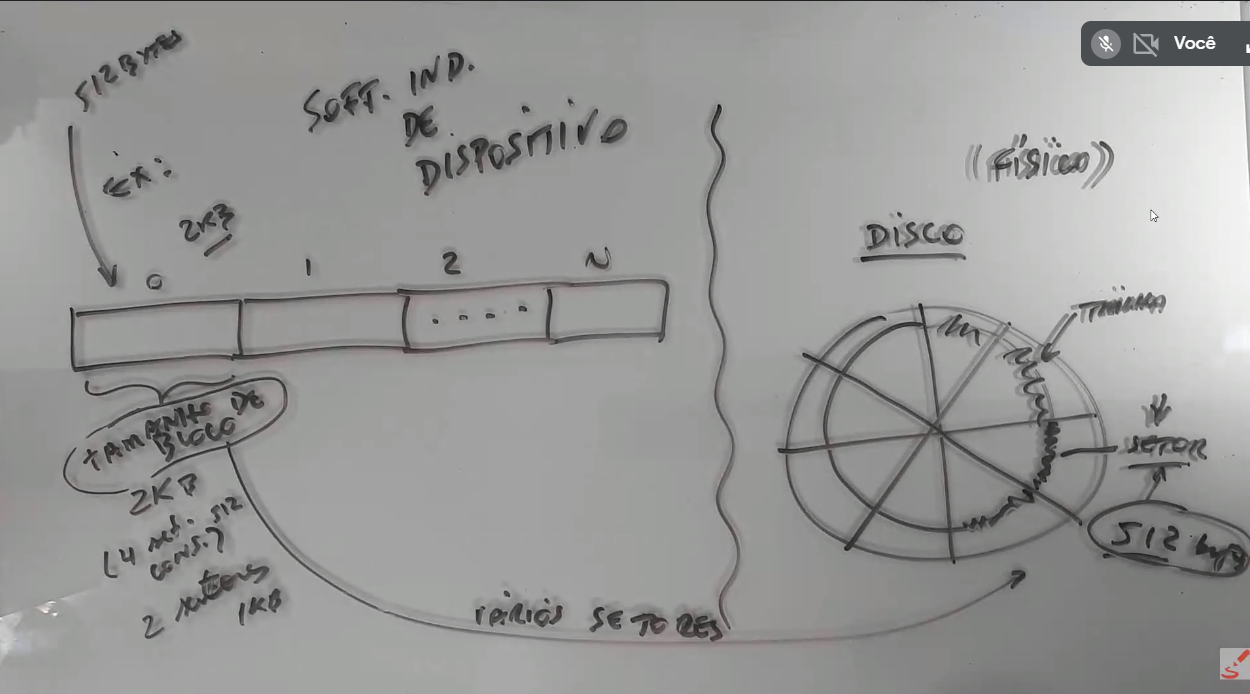 512 BYTES
EX:
2KB
SOFT. IND.
DE
DISPOSITIVO
0
1
2
N
. . . .
TAMANHO DE
BLOCO
2KB
(4 set. 512
cons.)
2 setores
1KB
VÁRIOS SETORES
((FÍSICO))
DISCO
TRILHA
SETOR
512 bytes
Você